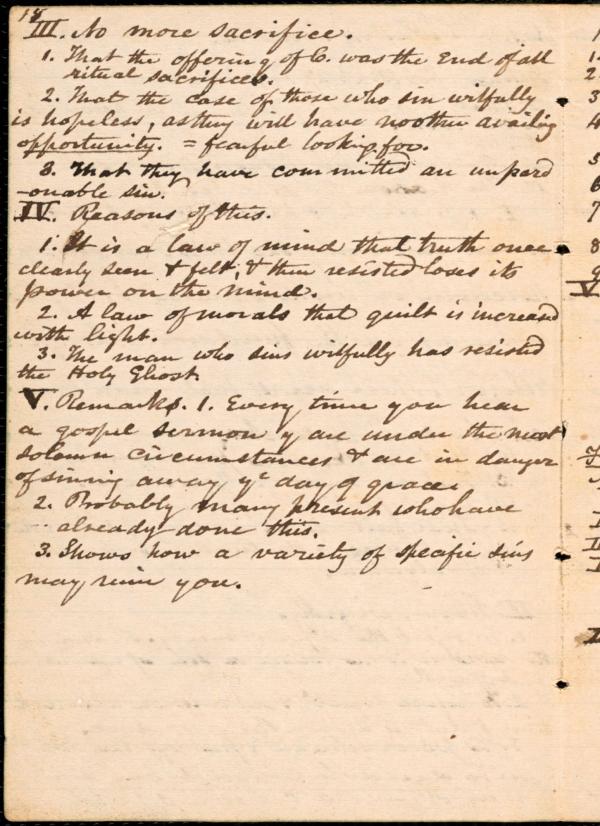 18
III. No more sacrifice.
1. That the offering of C. was the End of all
ritual sacrifices.
2. That the case of those who sin wilfully
is hopeless, as they will have no other availing
opportunity. = fearful looking for.
3. That they have committed an unpard
-onable sin.
IV. Reasons of this.
1. It is a law of mind that truth once
clearly seen & felt, & then resisted loses its
power on the mind.
2. A law of morals that guilt is increased
with light.
3. The man who sins wilfully has resisted
the Holy Ghost
V. Remarks. 1. Every time you hear
a gospel sermon y are under the most
solemn circumstances & are in danger
of sinning away yr day of grace.
2. Probably many present who have
already done this.
3. Shows how a variety of specific sins
may ruin you.
1
1.
2
3
4
5
6
7
8
9
V